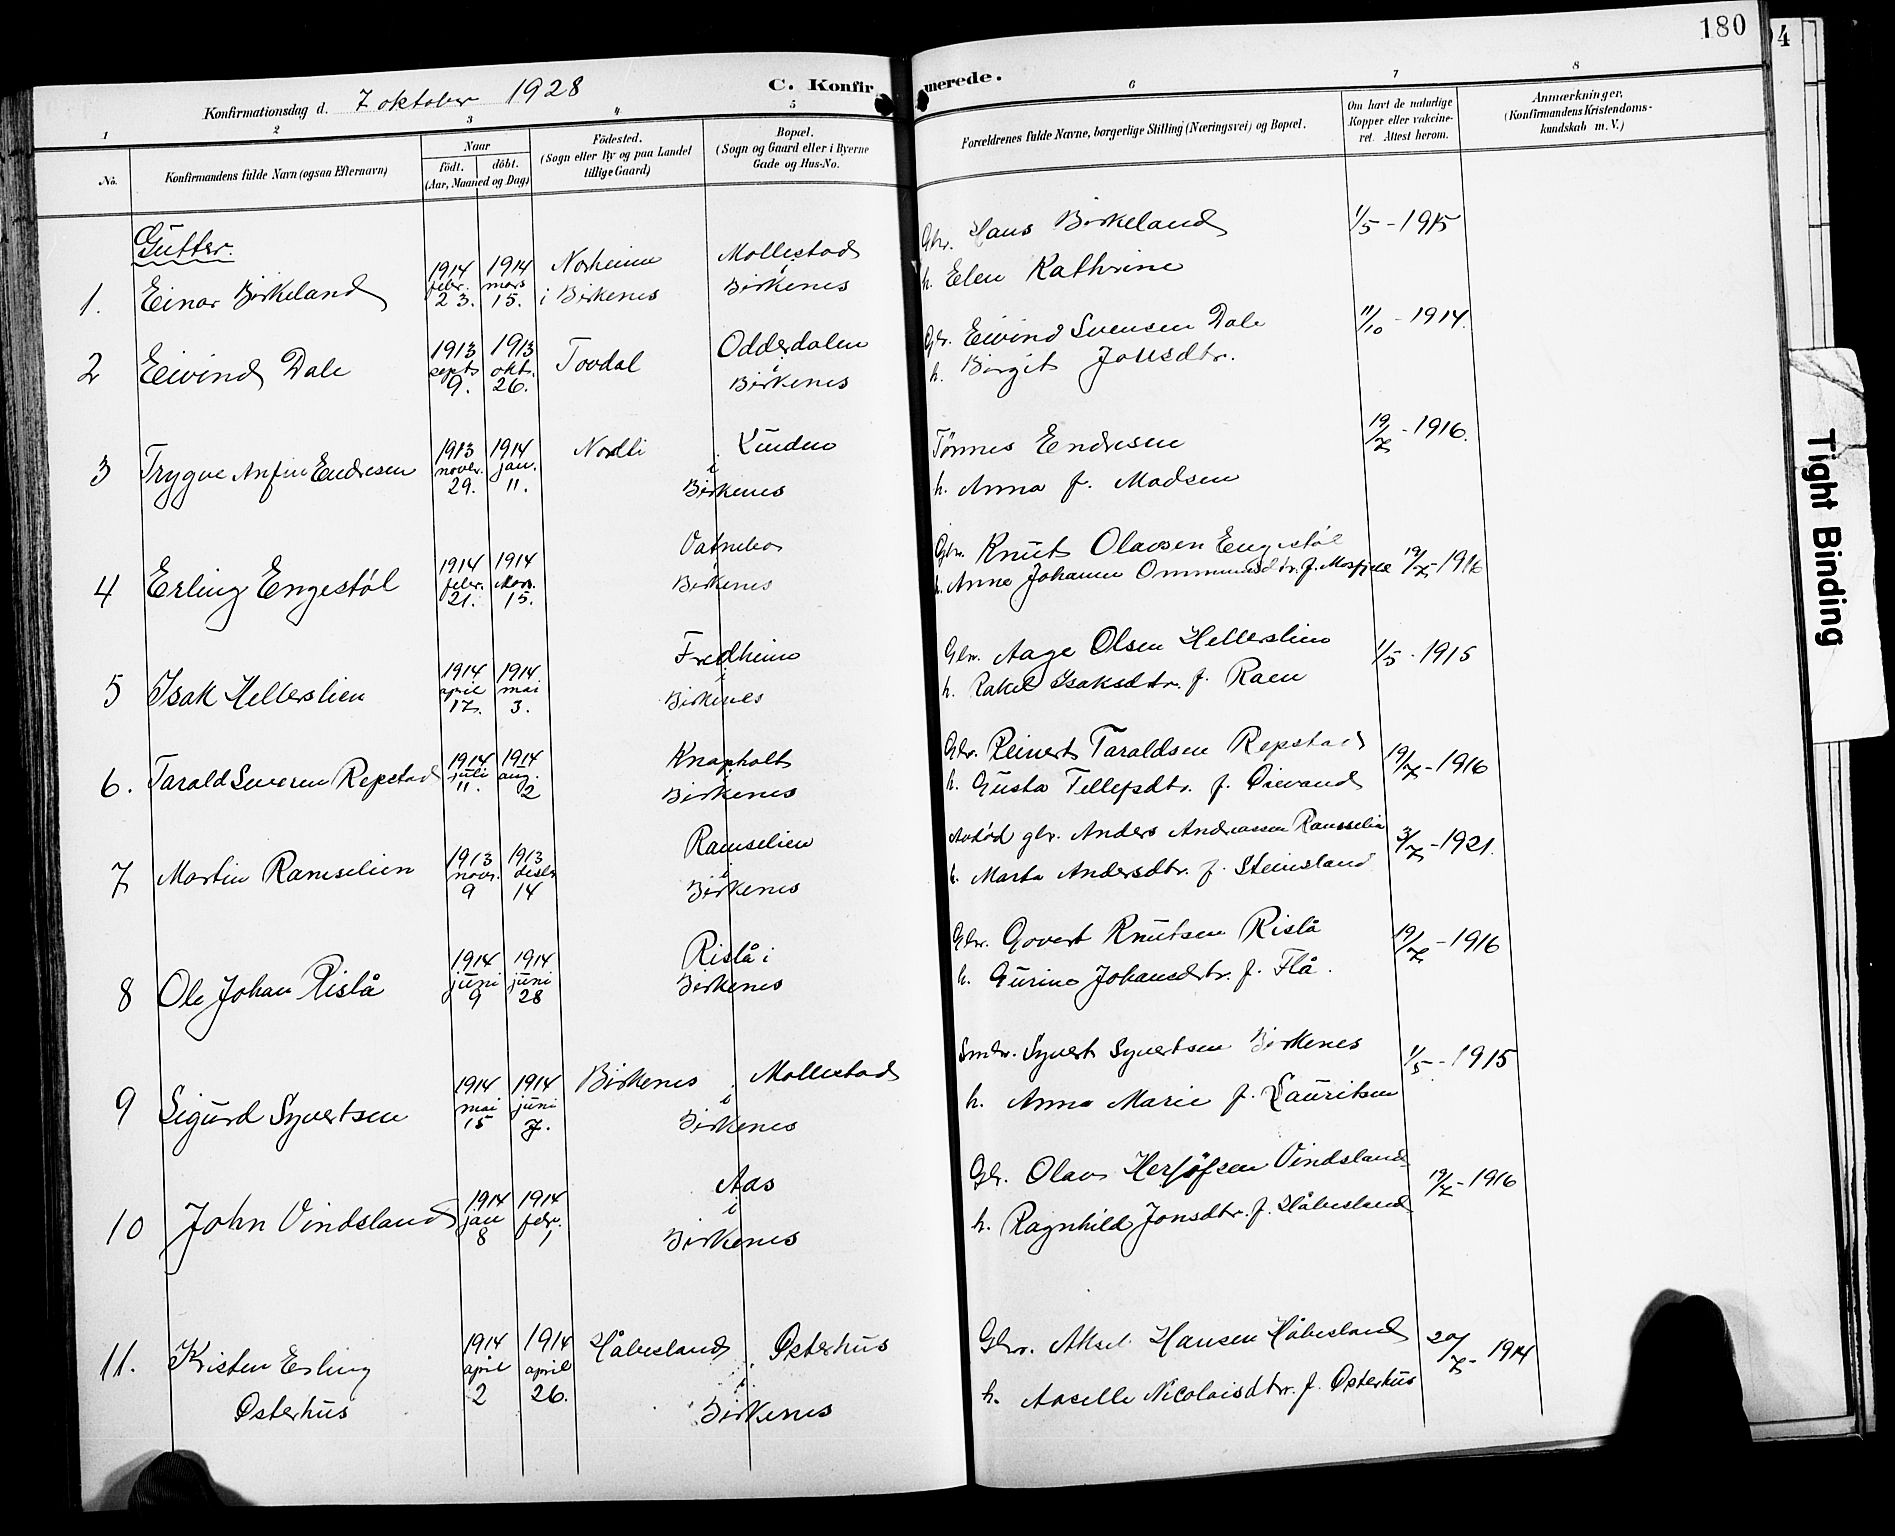 180
4
Konfirmationsdag d. 7 oktober 1928
C. Konfirmerede.
1 2 3 4 5 6 7 8
No.
Konfirmandens fulde Navn (ogsaa Efternavn)
Naar
født. døbt.
(Aar, Maaned og Dag)
Fødested.
(Sogn eller By og paa Landet
tillige Gaard)
Bopæl.
(Sogn og Gaard eller i Byerne
Gade og Hus-No.
Forældrenes fulde Navne, borgerlige Stilling (Næringsvei) og Bopæl.
Om havt de naturlige
Kopper eller vakcine-
ret. Attest herom.
Anmærkninger,
(Konfirmandens Kristendoms-
kundskab m. V.)
Gutter.
1. Einar Birkeland
1914 febr. 23.
1914 mars 15.
Norheim
i Birkenes
Mollestad
i
Birkenes
Gbr. Hans Birkeland
h. Elen Kathrine
1/5 - 1915
2 Eivind Dale
1913 sept 9.
1913 okt. 26.
Tovdal
Odderdalen
i
Birkenes
Gbr. Eivind Svensen Dale
h. Birgit Jonsdtr.
11/10 - 1914.
3 Trygve Anfin Endresen
1913 novbr. 29.
1914 jan. 11.
Nordli
Linden
i
Birkenes
Tønnes Endresen
h. Anna f. Madsen
19/7 - 1916.
4 Erling Engestøl
1914 febr. 21.
1914 Mars. 15.
Vatnebo
i
Birkenes
Gbr. Knut Olavsen Engestøl
h. Anne Johanne Ommundsdtr. f. Mosfjell
19/7 - 1916
5 Isak Hellerslien
1914 april 17.
1914 mai 3.
Fredheim
i
Birkenes
Gbr. Aage Olsen Hellerslien
h. Rakel Isaksdtr. f. Raen
1/5 - 1915
6. Tarald Severin Repstad
1914 juli 11.
1914 aug. 2
Knapholt
i
Birkenes
Gbr. Reinert Taraldsen Repstad
h. Gusta Tellefsdtr. f. Øievand
19/7 - 1916
7 Martin Ramselien
1913 novr. 9
1913 desbr 14
Ramselien
i
Birkenes
Avdød gbr. Anders Andreassen Ramselien
h. Marta Andersdtr. f. Steinsland
3/7 - 1921.
8 Ole Johan Rislå
1914 juni 9
1914 juni 28
Rislå i
Birkenes
Gbr. Govert Knutsen Rislå
h. Gurine Johansdtr. f. Flå.
19/7 - 1916
9 Sigurd Syvertsen
1914 mai 15
1914 juni 7.
Birkenes
Mollestad
i
Birkenes
Smbr. Syvert Syvertsen Birkenes
h. Anna Marie f. Lauritsen
1/5 - 1915
10 John Vindsland
1914 jan 8
1914 febr. 1
Aas
i
Birkenes
Gbr. Olav Herjøfsen Vindsland
h. Ragnhild Jonsdtr. f. Håbesland
19/7 - 1916
11. Kristen Erling
Østerhus
1914 april 2
1914 april 26.
Håbesland
Østerhus
i
Birkenes
Gbr. Aksel Hansen Håbesland
h. Aaselle Nicolaisdtr. f. Østerhus
20/7 - 1914
Tight Binding